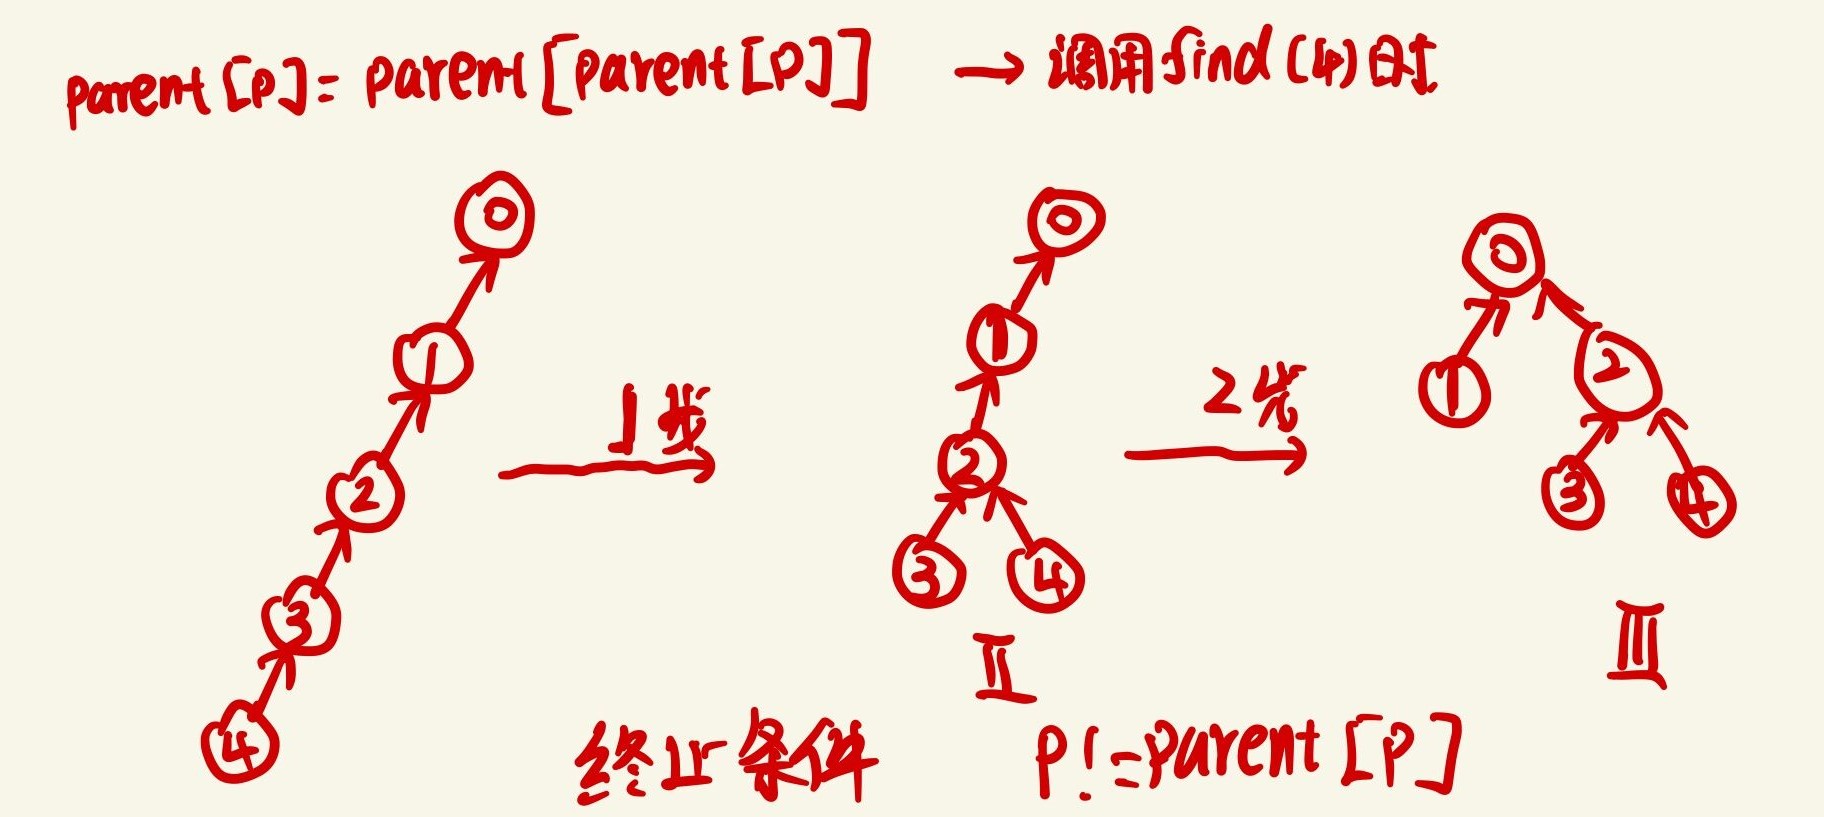 parent[p]= parent[parent[p]] → 调用find(4)时
0
1
2
3
4
1步
0
1
2
3 4
Ⅱ
2步
0
1 2
3 4
Ⅲ
终止条件 p!=parent[p]